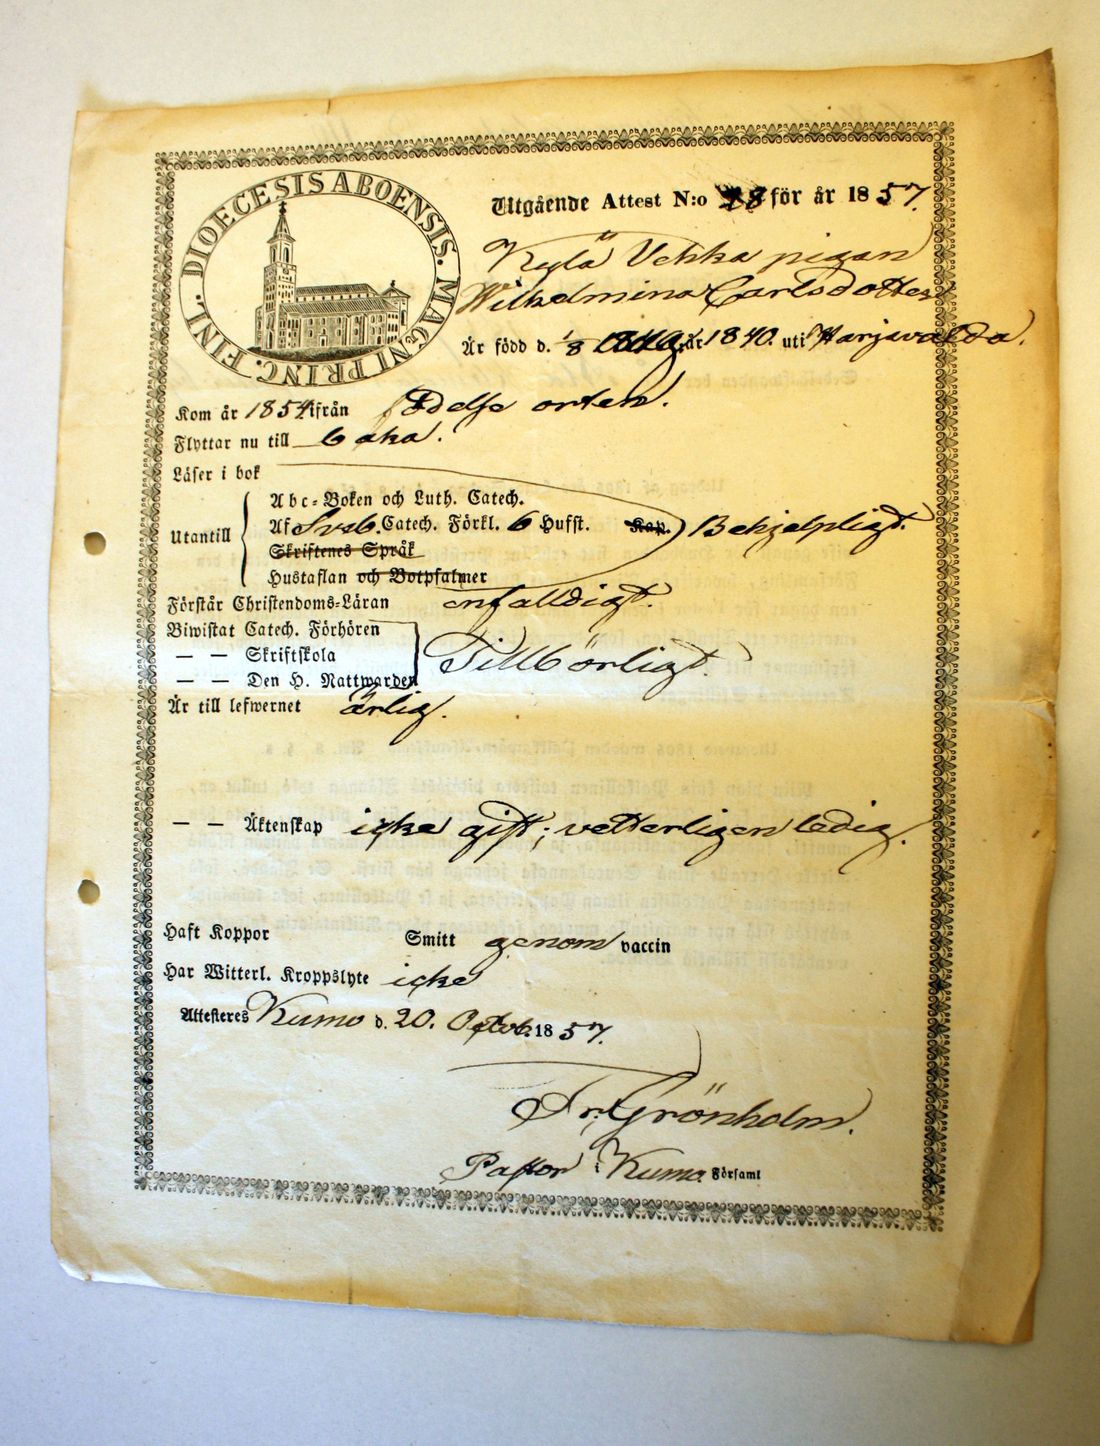 DIOECESIS ABOENSIS. MAGNI PRINC. FINL.
Utgående Attest N:o 78 för år 1857.
Kylä Vekka pigan
Wilhelmina Carlsdotter
Är född d. 1/8 år 1840. uti Harjavalda.
Kom år 1854 ifrån födelse orten.
Flyttar nu till baka.
Läser i bok
Abc-Boken och Luth. Catech.
Utantill Af Sveb. Catech. Förkl. 6 Hufst. Kap. Behjelpligt.
Skriftenes Språk
Hustaflan och Botpsalmer
Förstår Christendoms-Läran enfalldigt.
Biwistat Catech. Förhören
— — Skriftskola Tillbörligt.
— — Den H. Nattwarden
Är till lefwernet ärlig.
— — Äktenskap icke gift; vetterligen ledig.
Haft Koppor Smitt genom vaccin
Har Witterl. Kroppslyte icke
Attesteres Kumo d. 20. Octob. 1857.
Fr. Grönholm.
Pastor i Kumo Församl